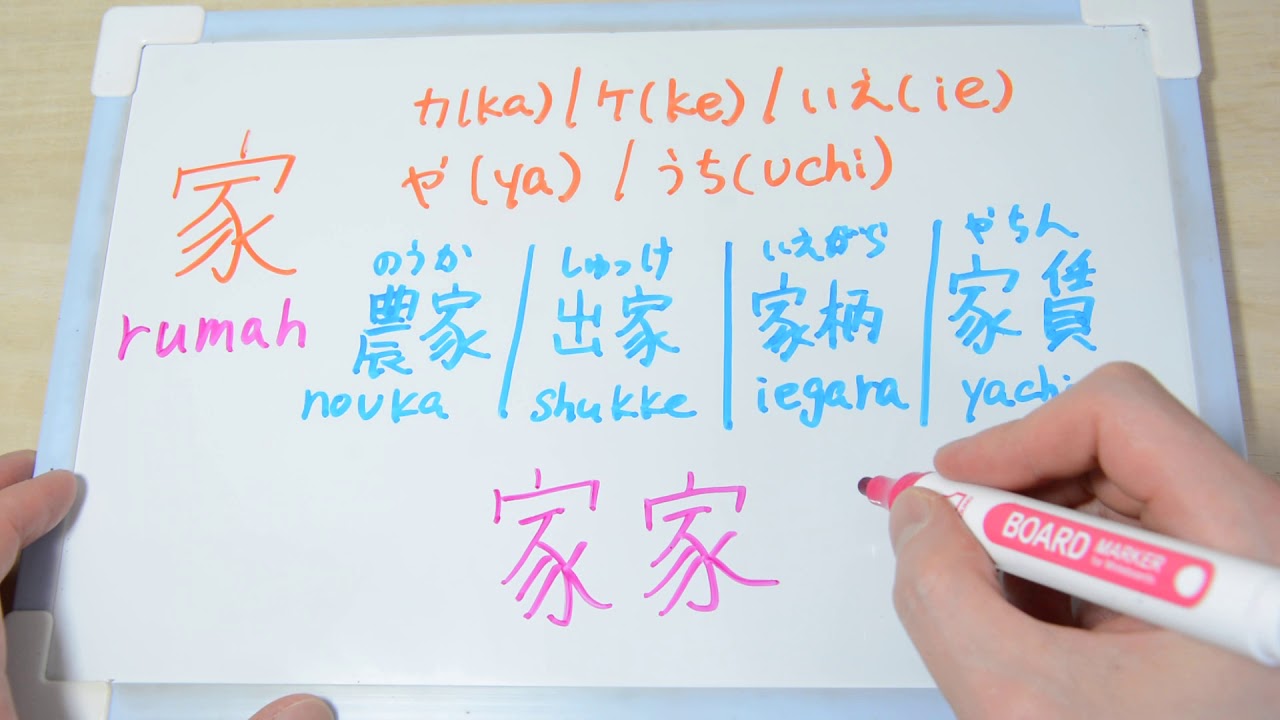 家
カ(ka) / ケ(ke) / いえ(ie)
や(ya) / うち(uchi)
rumah
のうか / しゅっけ | いえがら | やちん
農家 / 出家 | 家柄 | 家賃
nouka / shukke | iegara | yachi
家家
BOARD MARKER
for Whiteboards